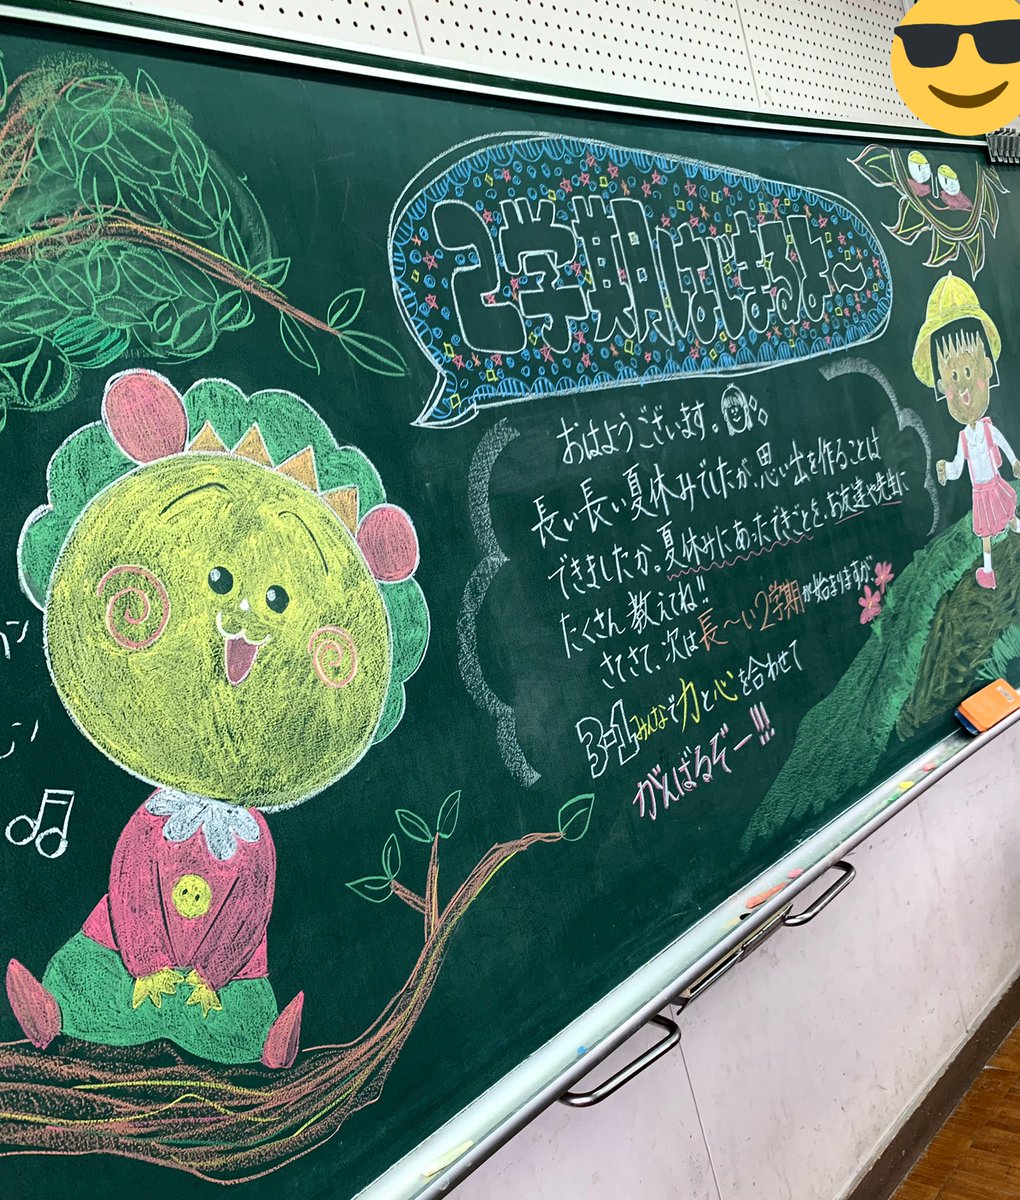 2学期はじまるよ〜
おはようございます。
長い長い夏休みでしたが、思い出を作ることは
できましたか。夏休みにあったできごとを、お友達や先生に
たくさん教えてね!!
さてさて、次は長〜い2学期が始まりますが
3-1みんなで力と心を合わせて
がんばるぞー!!!